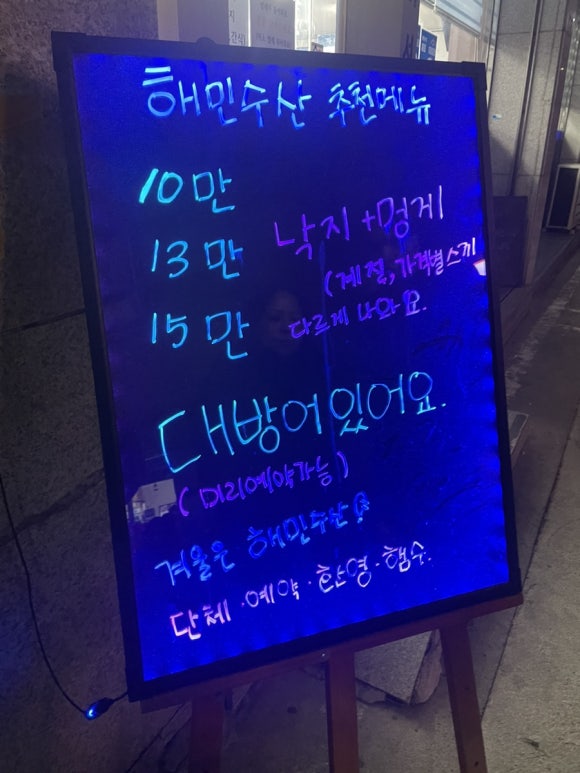 해민수산 추천메뉴
10만
13만 낙지+멍게
(계절,가격별 스끼
15만 다르게 나와요.
대방어있어요.
(미리예약가능)
겨울은 해민수산
단체·예약·환영·햄수.